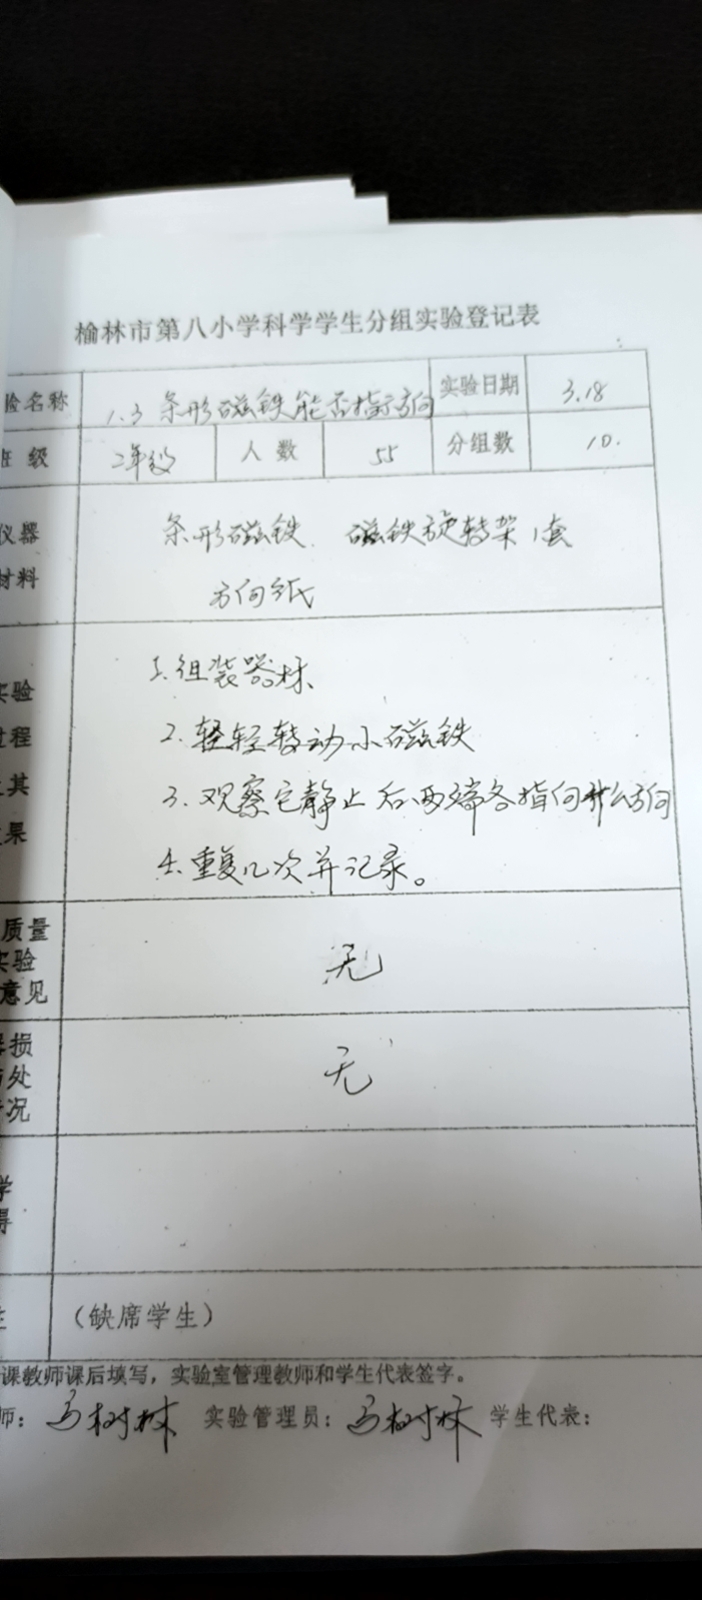 榆林市第八小学科学学生分组实验登记表
验名称 1.3 条形磁铁能否指示方向 实验日期 3.18
班 级 2年级 人 数 55 分组数 10.
仪器 条形磁铁 磁铁旋转架1套
材料 方向纸
1.组装器材
实验
过程 2.轻轻转动小磁铁
其 3.观察它静止后两端各指向什么方向
果 4.重复几次并记录。
质量
实验 无
意见
损
处 无
况
学
得
（缺席学生）
课教师课后填写，实验室管理教师和学生代表签字。
师：马树林 实验管理员：马树林 学生代表：